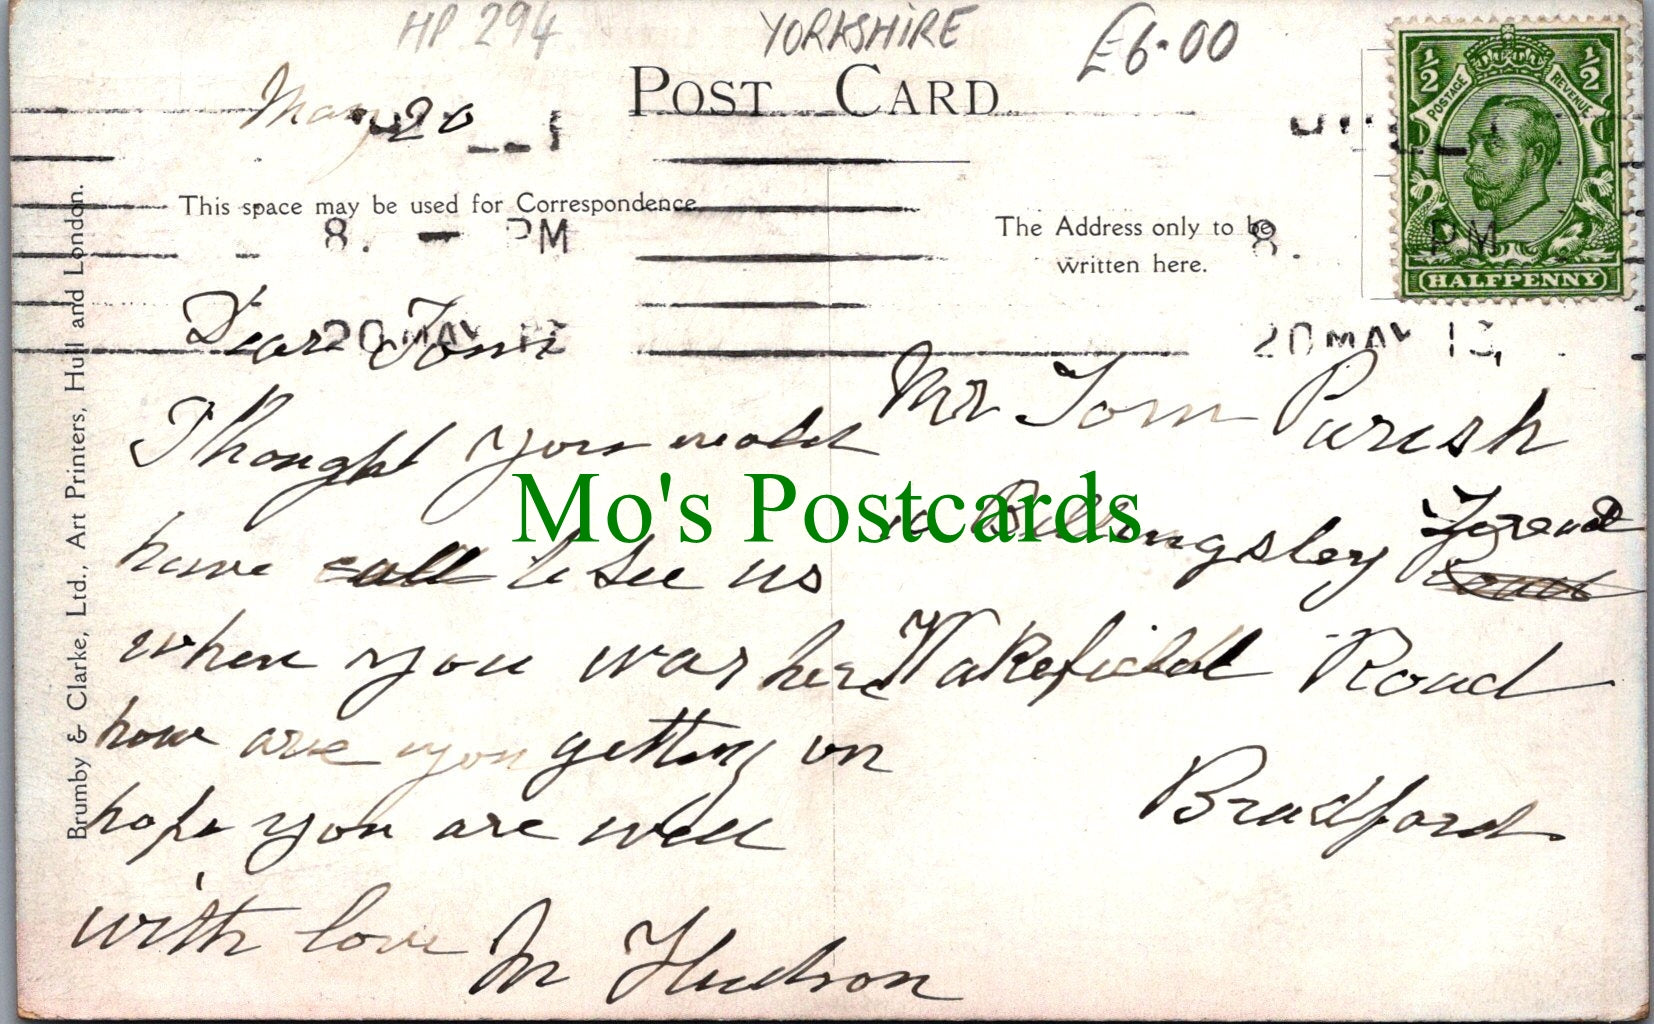 HP 294
YORKSHIRE
£6.00
POST CARD
May 20
This space may be used for Correspondence.
The Address only to be
written here.
8. PM
8. PM
20 MAY
20 MAY 13
½ ½
POSTAGE REVENUE
HALFPENNY
Brumby & Clarke, Ltd., Art Printers, Hull and London.
Dear Tom
I thought you wold
have call to see us
when you was here
how are you getting on
hope you are well
with love M Hudson
Mr Tom Parish
10 Billingsley Terend
Wakefield Road
Bradford
Mo's Postcards